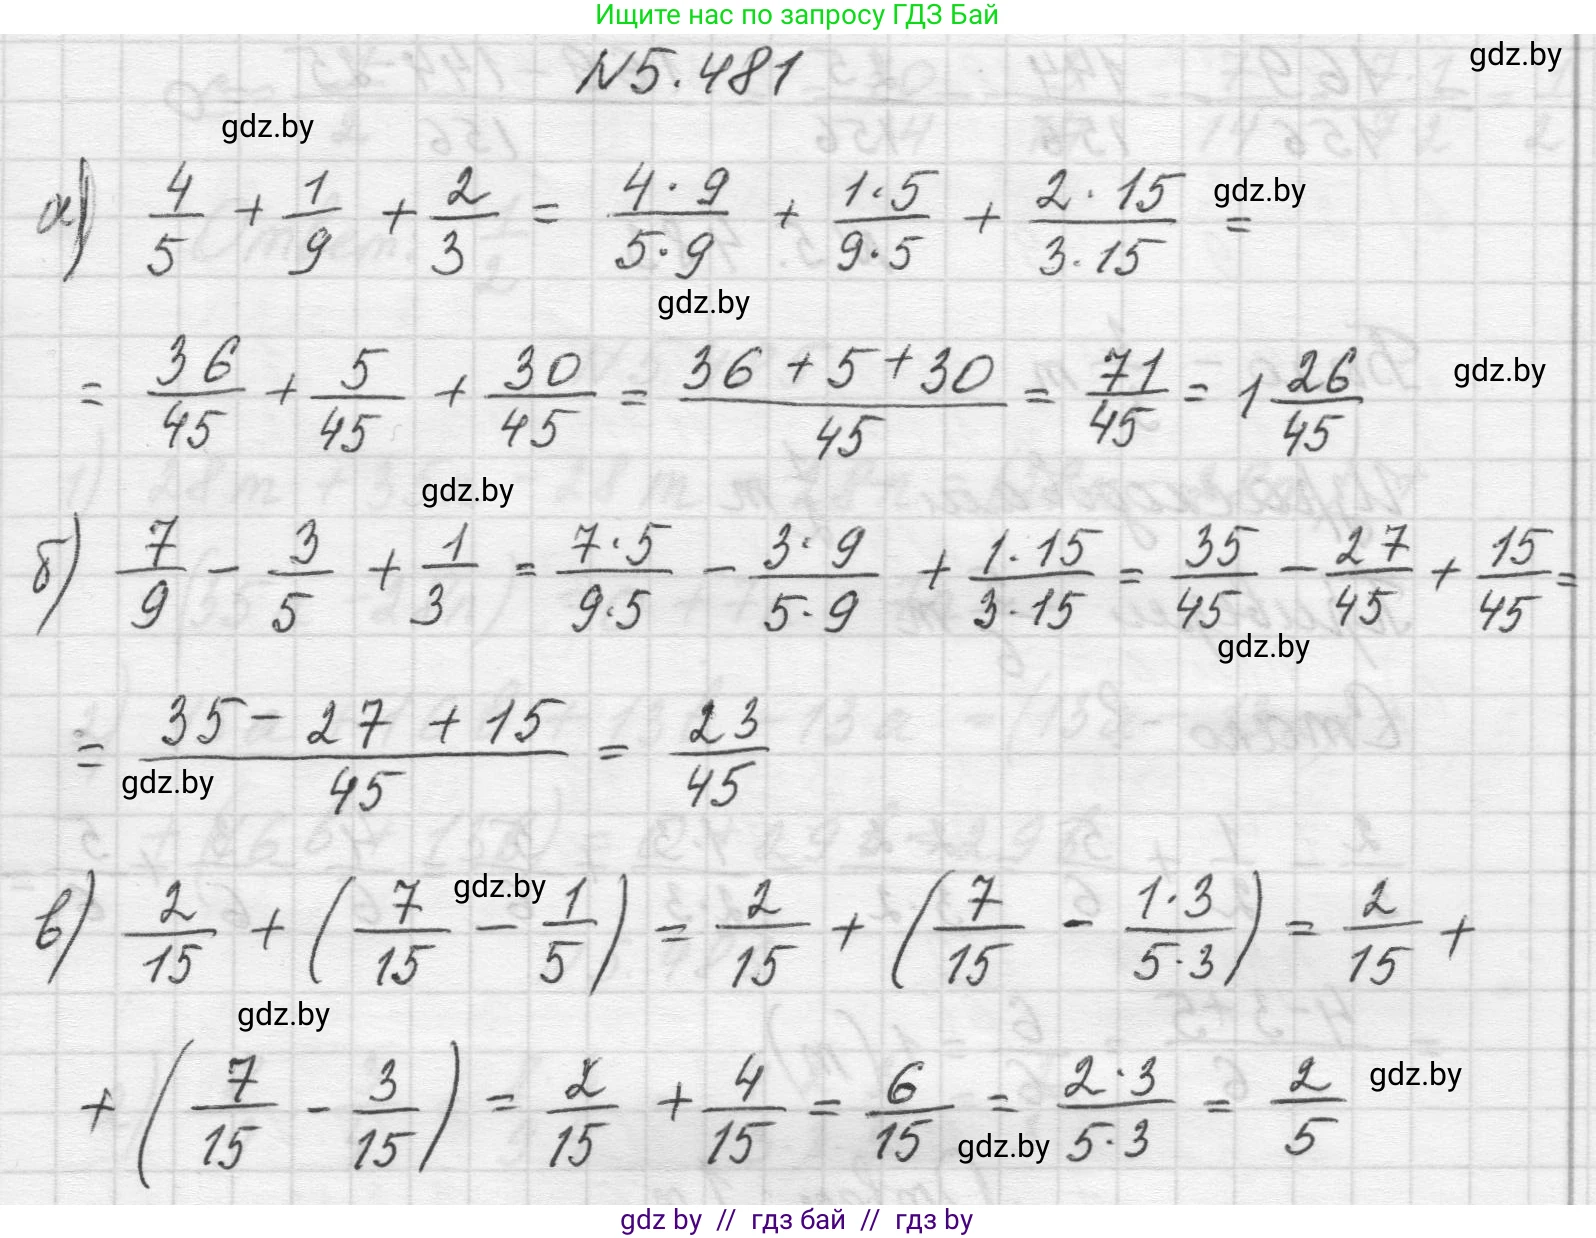 Ищите нас по запросу ГДЗ Бай
gdz.by
N5.481
gdz.by
а) 4/5 + 1/9 + 2/3 = 4·9/5·9 + 1·5/9·5 + 2·15/3·15 =
gdz.by
gdz.by
= 36/45 + 5/45 + 30/45 = 36+5+30/45 = 71/45 = 1 26/45
gdz.by
gdz.by
б) 7/9 - 3/5 + 1/3 = 7·5/9·5 - 3·9/5·9 + 1·15/3·15 = 35/45 - 27/45 + 15/45 =
gdz.by
= 35-27+15/45 = 23/45
gdz.by
в) 2/15 + (7/15 - 1/5) = 2/15 + (7/15 - 1·3/5·3) = 2/15 +
gdz.by
gdz.by
+ (7/15 - 3/15) = 2/15 + 4/15 = 6/15 = 2·3/5·3 = 2/5
gdz.by
gdz.by
gdz by // гдз бай // гдз by